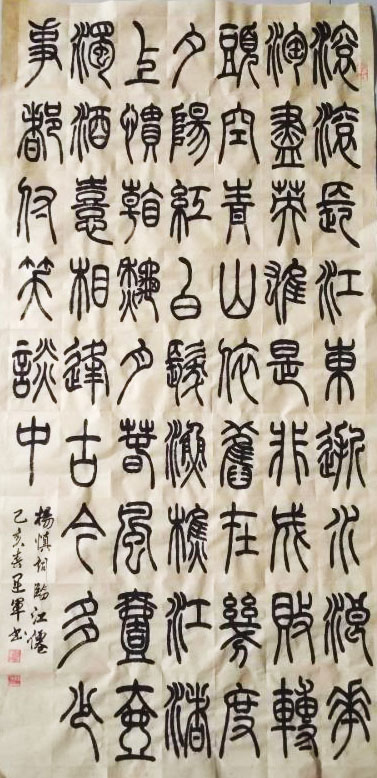 滾滾長江東逝水浪花
淘盡英雄是非成敗轉
頭空青山依舊在幾度
夕陽紅白髮漁樵江渚
上慣看龝月春風壹壺
濁酒憙相逢古今多少
事都付笑談中
楊慎詞臨江僊
己亥春軍書